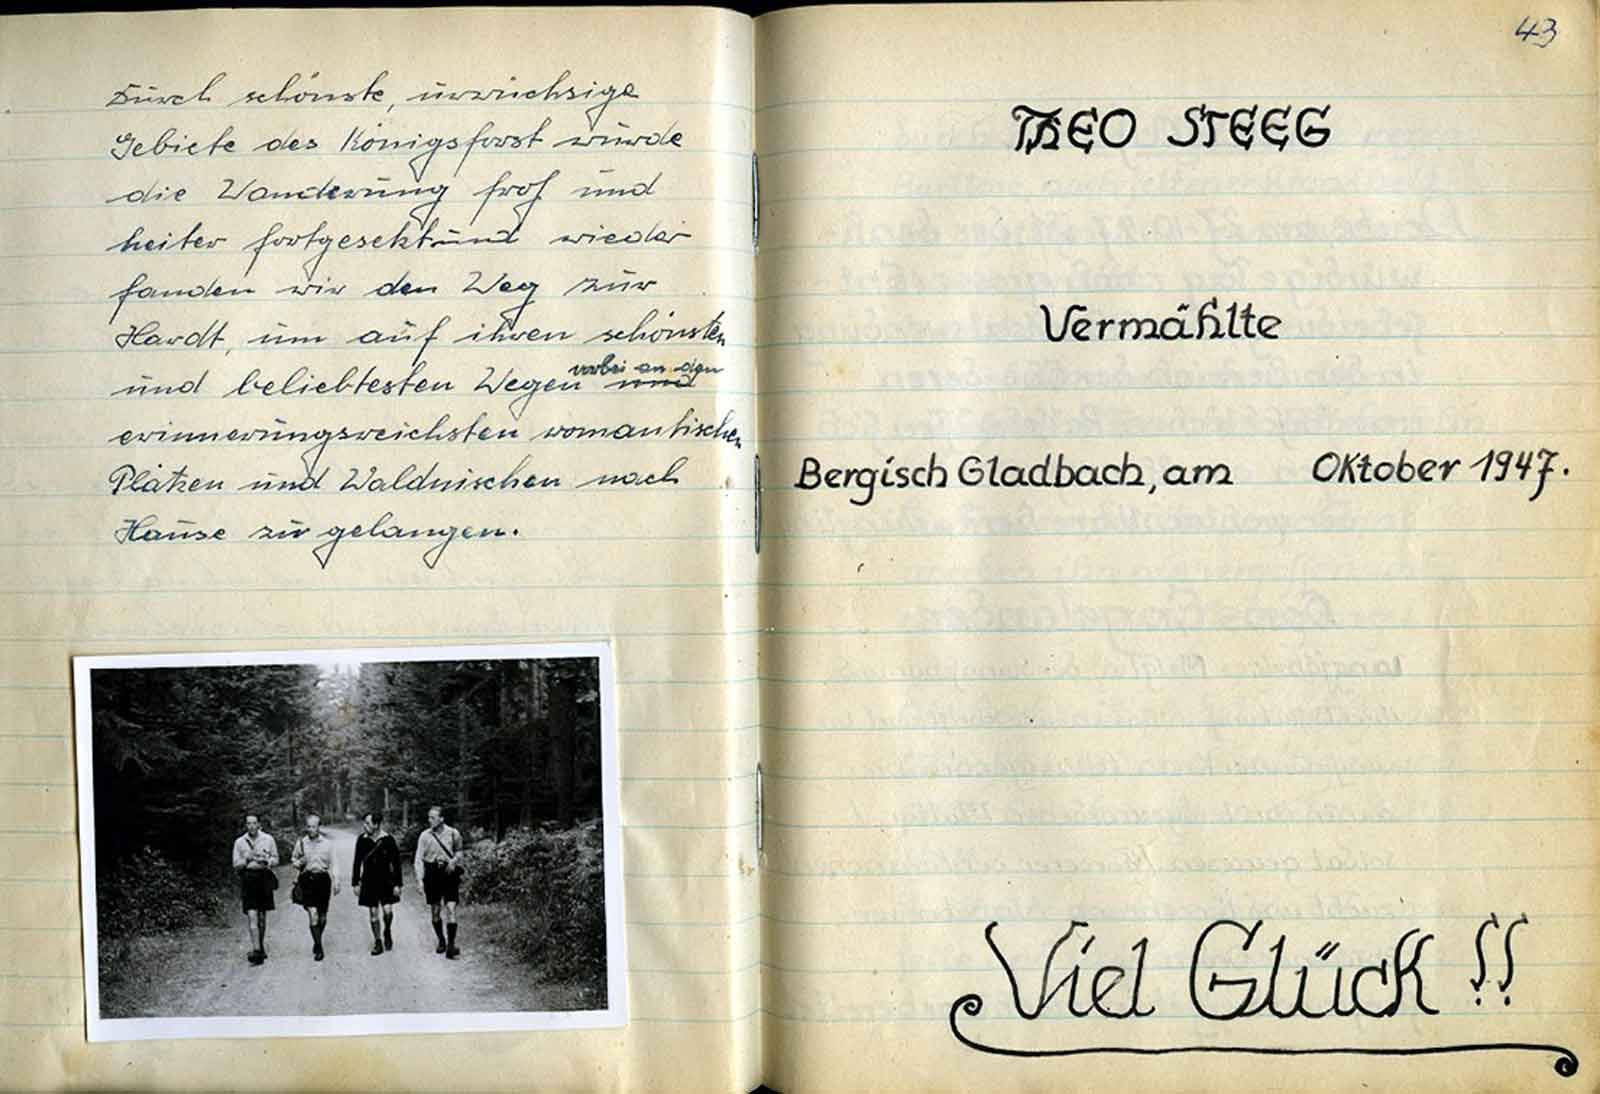 Durch schönste, urwüchsige
Gebiete des Königsforst wurde
die Wanderung froh und
heiter fortgesetzt und wieder
fanden wir den Weg zur
Hardt, um auf ihren schönsten
vorbei an den
und beliebtesten Wegen und
erinnerungsreichsten romantischen
Plätzen und Waldnischen nach
Hause zu gelangen.
43
THEO STEEG
Vermählte
Bergisch Gladbach, am Oktober 1947.
Viel Glück !!